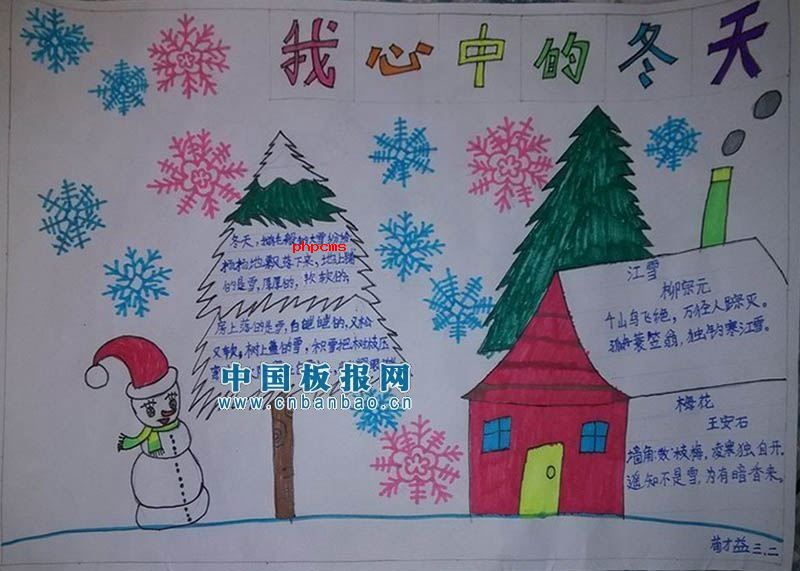 我心中的冬天
冬天,鹅毛般的大雪纷纷
扬扬地飘落下来,地上踏
的是雪,厚厚的,软软的;
房上落的是雪,白皑皑的,又松
又软,树上盖的雪,积雪把树枝压
phpcms
中国板报网
www.cnbanbao.cn
江雪
柳宗元
千山鸟飞绝,万径人踪灭。
孤舟蓑笠翁,独钓寒江雪。
梅花
王安石
墙角数枝梅,凌寒独自开,
遥知不是雪,为有暗香来。
三.二